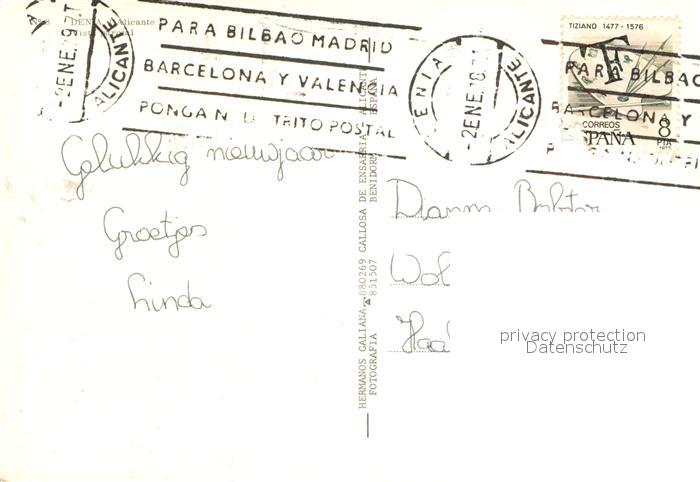 DENIA (Alicante)
Vista
2 ENE.
ALICANTE
PARA BILBAO MADRID
BARCELONA Y VALENCIA
PONGAN DTRITO POSTAL
DENIA
-2 ENE.
ALICANTE
TIZIANO 1477-1576
PARA BILBAO
BARCELONA Y
CORREOS
ESPAÑA
8
PTA
Gelukkig nieuwjaar
Groetjes
Linda
HERMANOS GALIANA 880269 CALLOSA DE ENSARRIA ALICANTE
FOTOGRAFIA ☎ 851507 BENIDORM ESPAÑA
Wol
Haa
privacy protection
Datenschutz